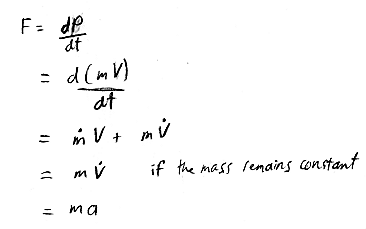 F = dP/dt
= d(mV)/dt
= ṁV + mV̇
= mV̇ if the mass remains constant
= ma